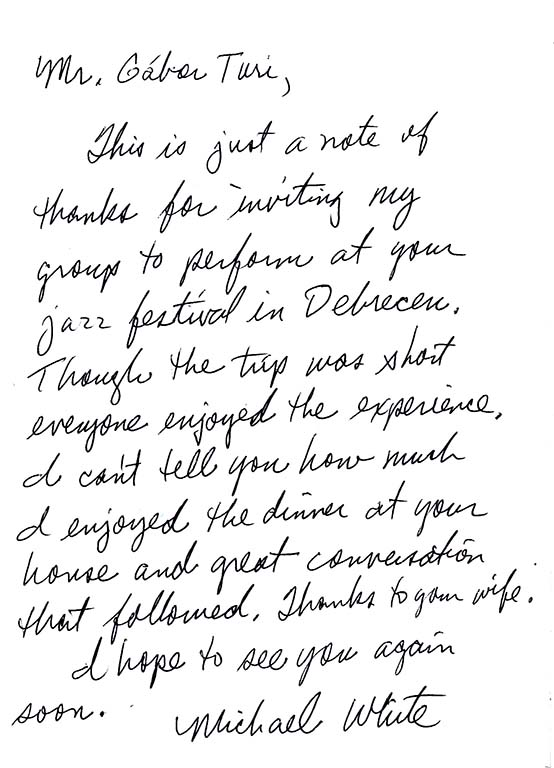 Mr. Gábor Turi,
This is just a note of
thanks for inviting my
group to perform at your
jazz festival in Debrecen.
Though the trip was short
everyone enjoyed the experience.
I can't tell you how much
I enjoyed the dinner at your
house and great conversation
that followed. Thanks to your wife.
I hope to see you again
soon.
Michael White